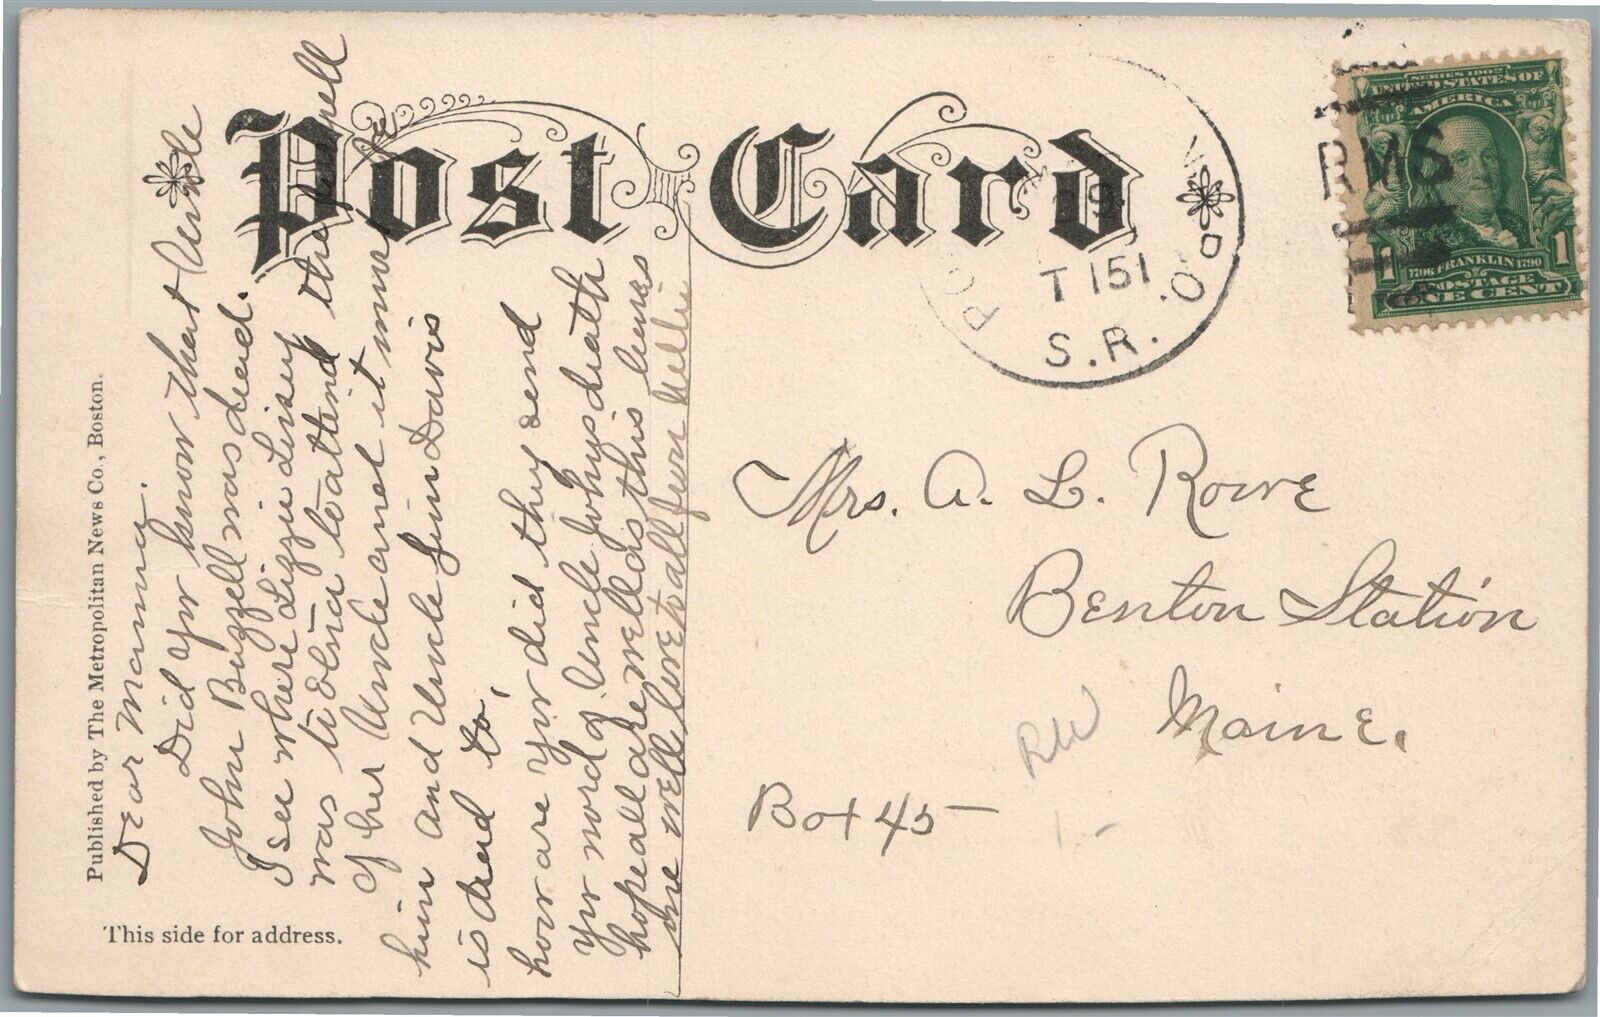 Post Card
SERIES 1902
UNITED STATES OF
AMERICA
1706 FRANKLIN 1790
1 1
POSTAGE
ONE CENT
RMS
T 151
S.R.
P.O.
Published by The Metropolitan News Co., Boston.
This side for address.
Dear Mamma.
Did you know that
John Buzzell was dead.
I see where Lizzie
was to to attend the
of her Uncle and it
him and Uncle Jim Davis
is dead to,
how are you did they send
you word of Uncle Johys death
hope all are well as this leaves
me well love to all from Nellie
Mrs. A. L. Rowe
Benton Station
Maine.
Box 45
RW